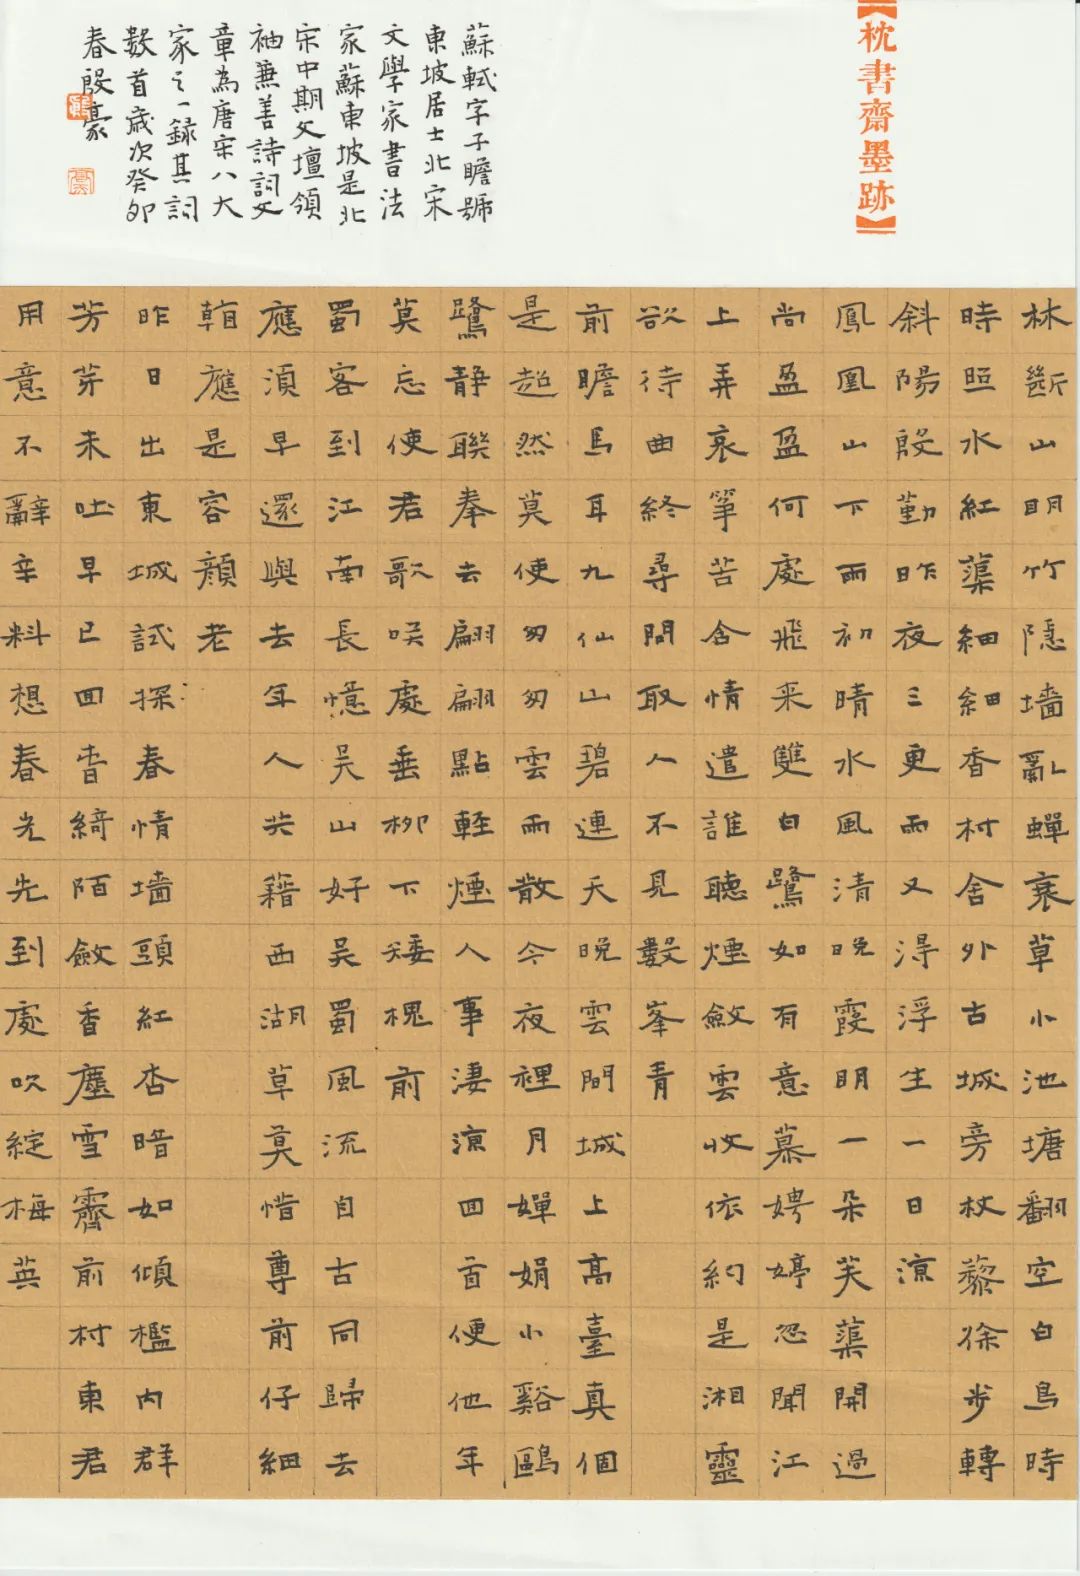 【枕書齋墨跡】
蘇軾字子瞻號
東坡居士北宋
文學家書法
家蘇東坡是北
宋中期文壇領
袖兼善詩詞文
章為唐宋八大
家之一錄其詞
數首歲次癸卯
春殷豪
林斷山明竹隱墻亂蟬衰草小池塘翻空白鳥時
時照水紅蕖細細香村舍外古城旁杖藜徐步轉
斜陽殷勤昨夜三更雨又得浮生一日涼
鳳凰山下雨初晴水風清晚霞明一朵芙蕖開過
尚盈盈何處飛來雙白鷺如有意慕娉婷忽聞江
上弄哀箏苦含情遣誰聽煙斂雲收依約是湘靈
欲待曲終尋問取人不見數峯青
前瞻馬耳九仙山碧連天晚雲間城上高臺真個
是超然莫使匆匆雲雨散今夜裡月嬋娟小谿鷗
鷺靜聯拳去翩翩點輕煙人事淒涼回首便他年
莫忘使君歌咲處垂柳下矮槐前
蜀客到江南長憶吳山好吳蜀風流自古同歸去
應須早還與去年人共藉西湖草莫惜尊前仔細
應是容顏老
昨日出東城試探春情墻頭紅杏暗如傾檻內群
芳芽未吐早已回春綺陌斂香塵雪霽前村東君
用意不辭辛料想春光先到處吹綻梅英